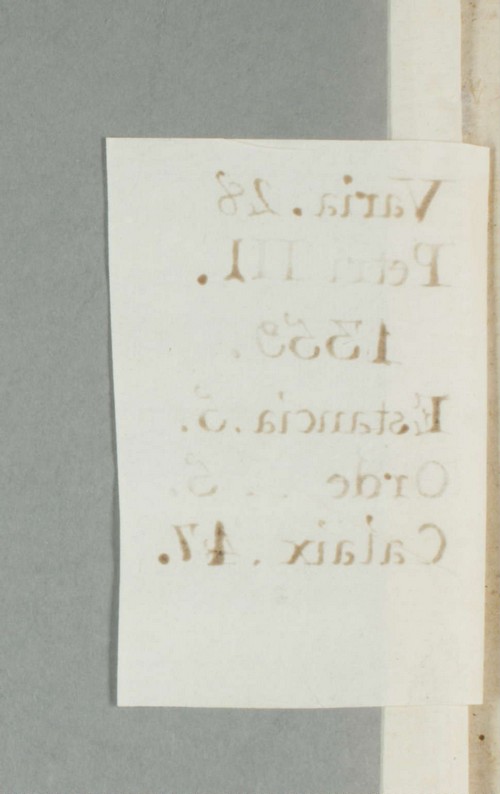 Varia. 28
Petri III.
1359.
Estancia. 3.
Orde . . 5.
Calaix. 47.